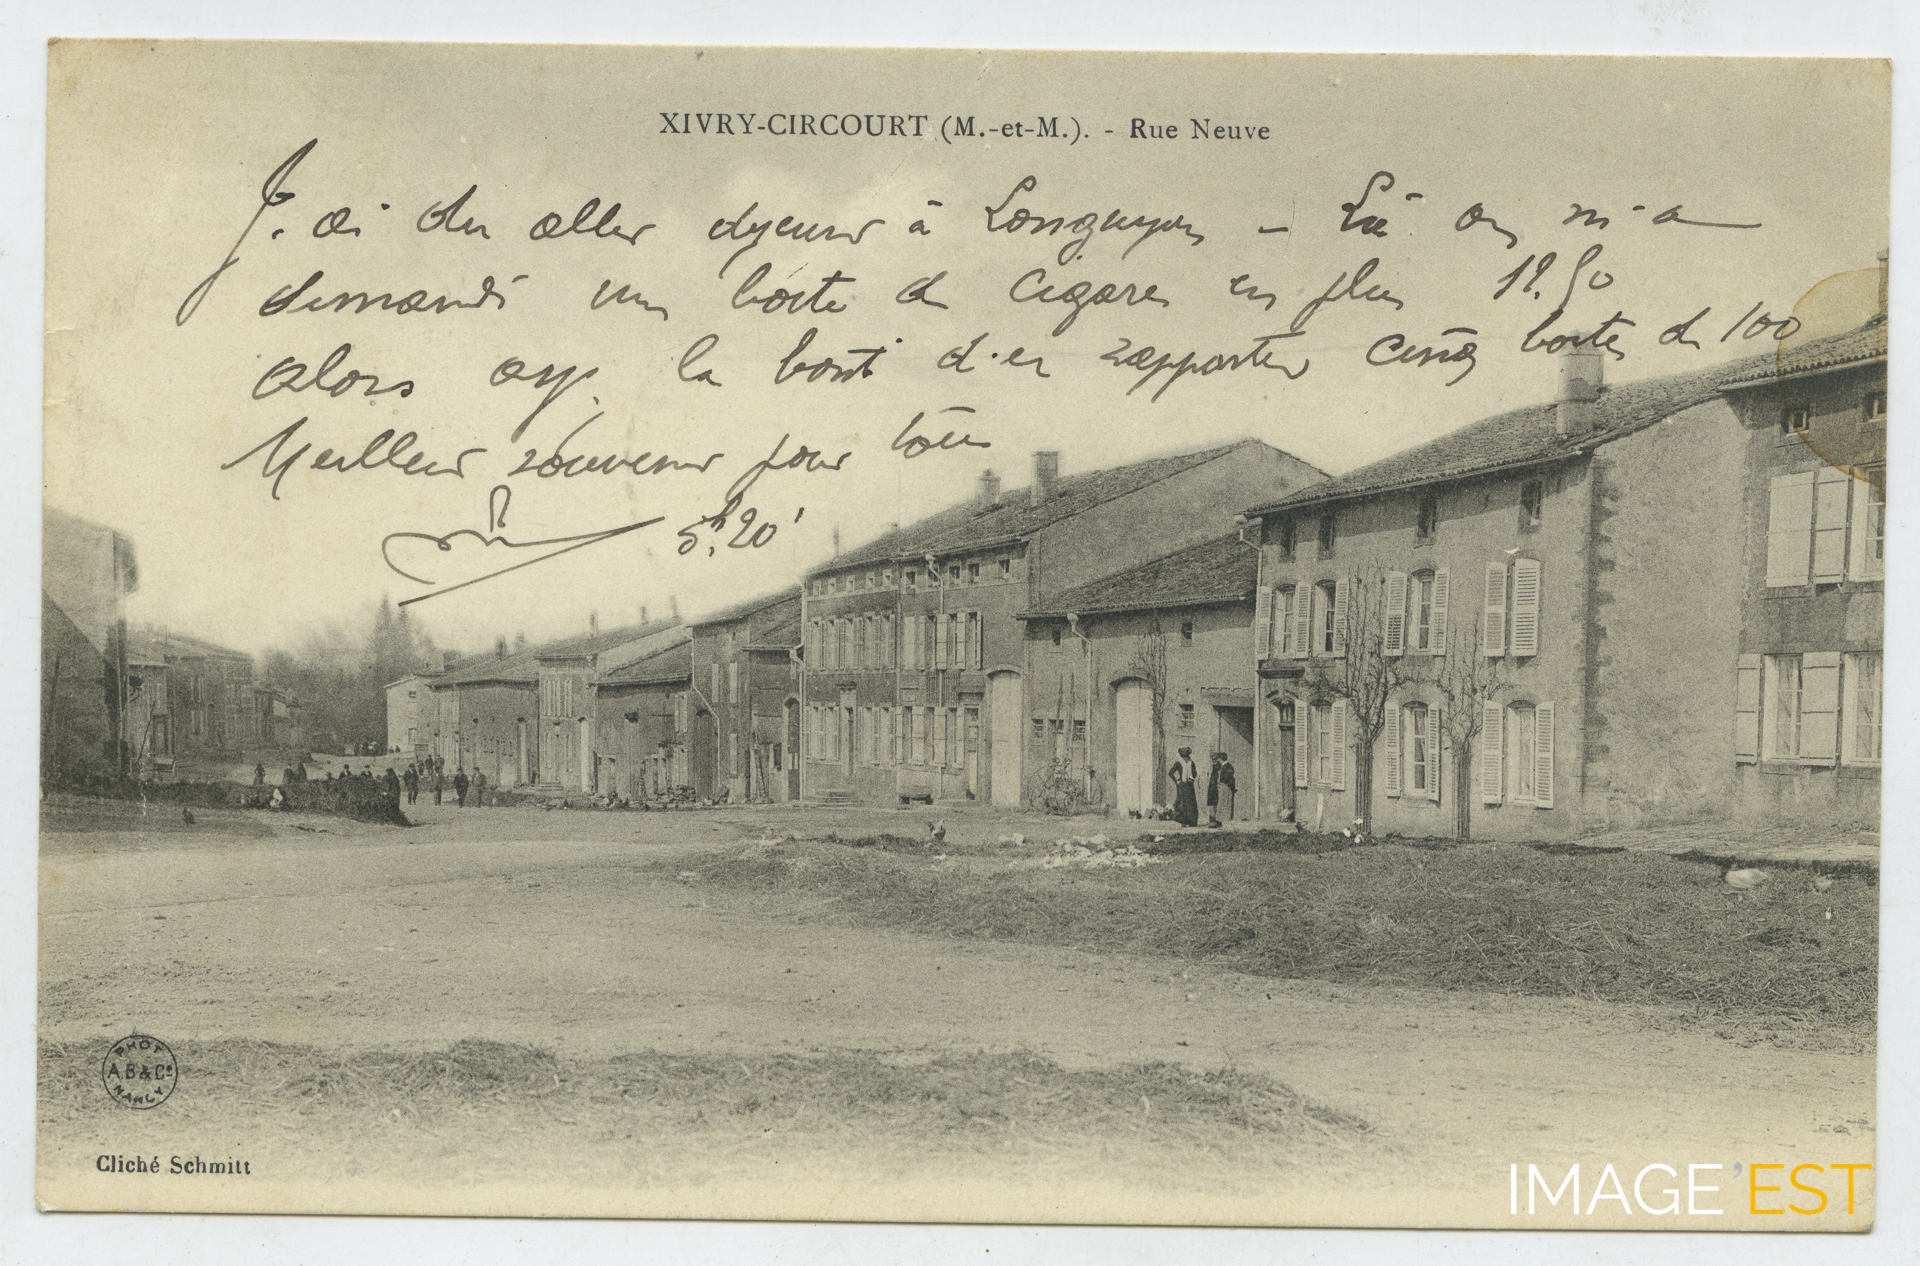 XIVRY-CIRCOURT (M.-et-M.). - Rue Neuve
J'ai du aller déjeuner à Longuyon - Là on m'a
demandé une boite de cigares en plus 12.50
alors aye la bonté d'en rapporter cinq boites de 100
Meilleur souvenir pour tous
5h,20'
PHOT
A.B & Cie
NANCY
Cliché Schmitt
IMAGE'EST